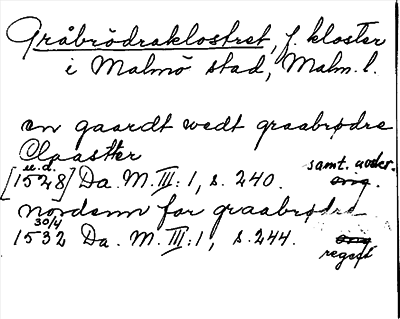 Gråbrödraklostret, f. kloster
i Malmö stad, Malm. l.
en gaardt wedt graabrødre
Claastter
u.d. samt. avskr.
[1528] Da. M. III:1, s. 240. orig.
nordenn for graabrødre
30/4
1532 Da. M. III:1, s. 244. orig
regest